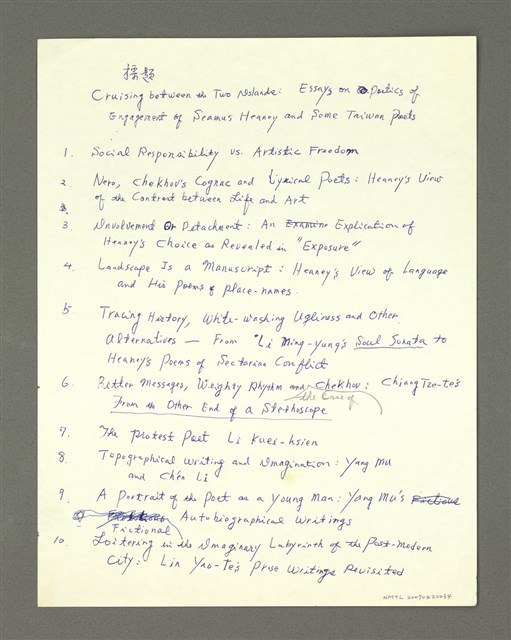 標題
Cruising between the Two Islands: Essays on Poetics of
Engagement of Seamus Heaney and Some Taiwan Poets
1. Social Responsibility vs. Artistic Freedom
2. Nero, Chekhov's Cognac and Lyrical Poets: Heaney's View
of the Contrast between Life and Art
3. Involvement Or Detachment: An Examine Explication of
Heaney's Choice as Revealed in "Exposure"
4. Landscape Is a Manuscript: Heaney's View of Language
and His Poems of place-names.
5. Tracing History, White-washing Ugliness and Other
Alternatives — From "Li Ming-yung's Soul Sonata to
Heaney's Poems of Sectarian Conflict
6. Bitter Messages, Weighty Rhythm and Chekhov: Chiang Tze-te's
the Case of
From the Other End of a Stethoscope
7. The Protest Poet Li Kuei-hsien
8. Topographical Writing and Imagination: Yang Mu
and Ch'en Li
9. A Portrait of the Poet as a Young Man: Yang Mu's Fictious
Autobiographical Writings
Fictional
10. Loitering in the Imaginary Labyrinth of the Post-Modern
City: Lin Yao-Te's Prose Writings Revisited
NMTL 20090620034